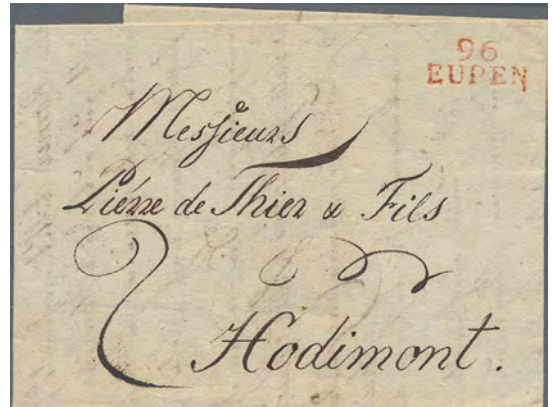 96
EUPEN
Messieurs
Piérre de Thier & Fils
2
Hodimont.